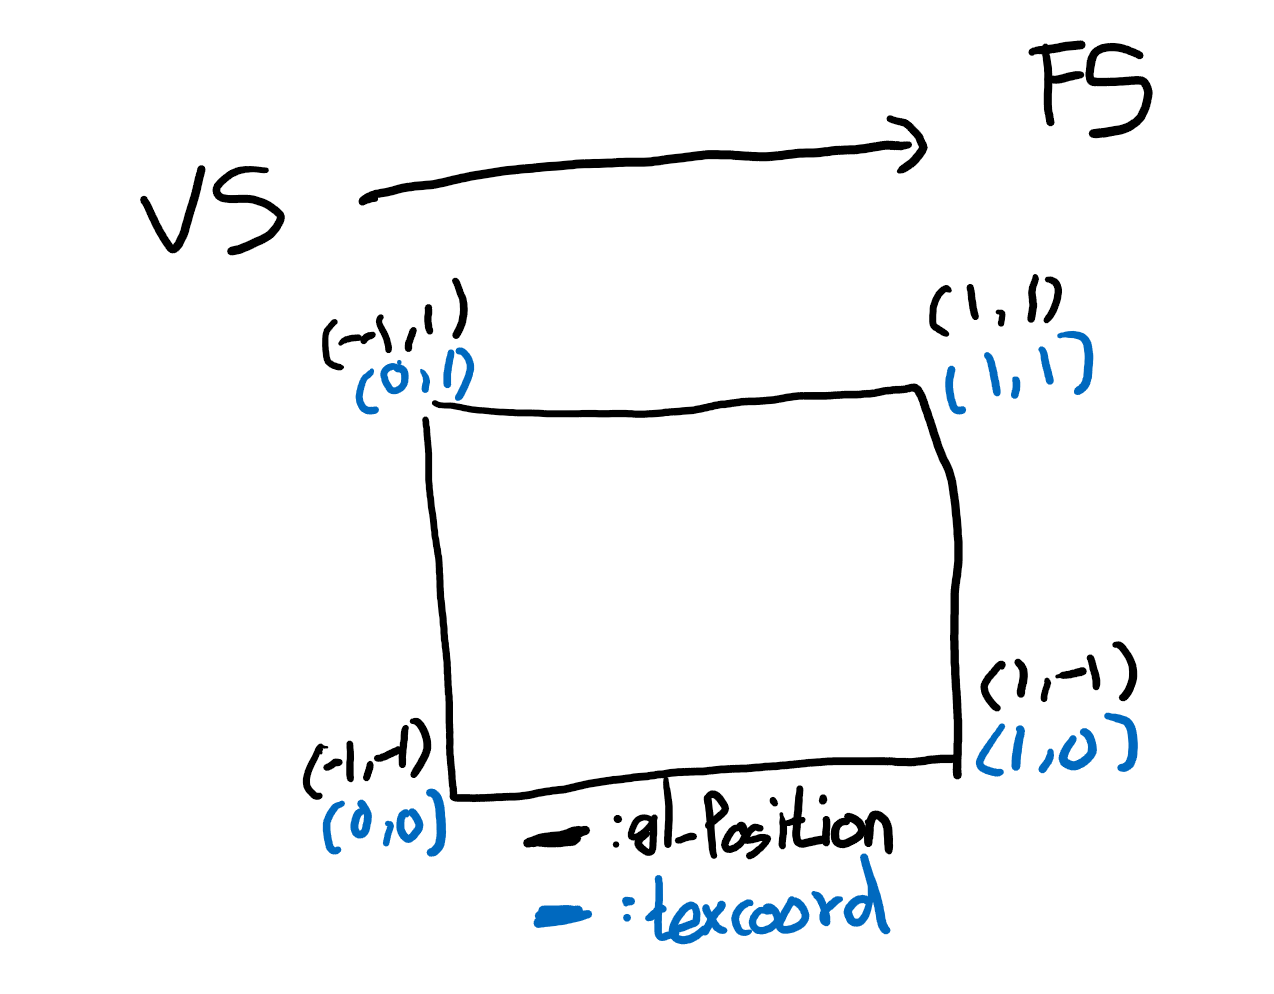 FS
VS
(-1,1)
(0,1)
(1,1)
(1,1)
(1,-1)
(1,0)
(-1,-1)
(0,0)
:gl_Position
:texcoord